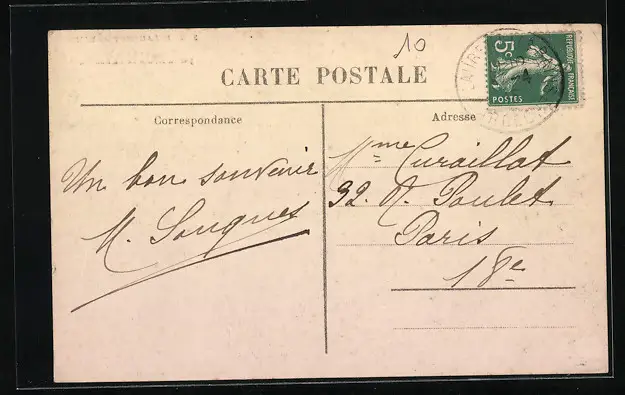 10
CARTE POSTALE
5c
REPUBLIQUE FRANÇAISE
POSTES
Correspondance
Adresse
Un bon souvenir
M.
Mme Curaillat
32. R. Poulet
Paris
18e